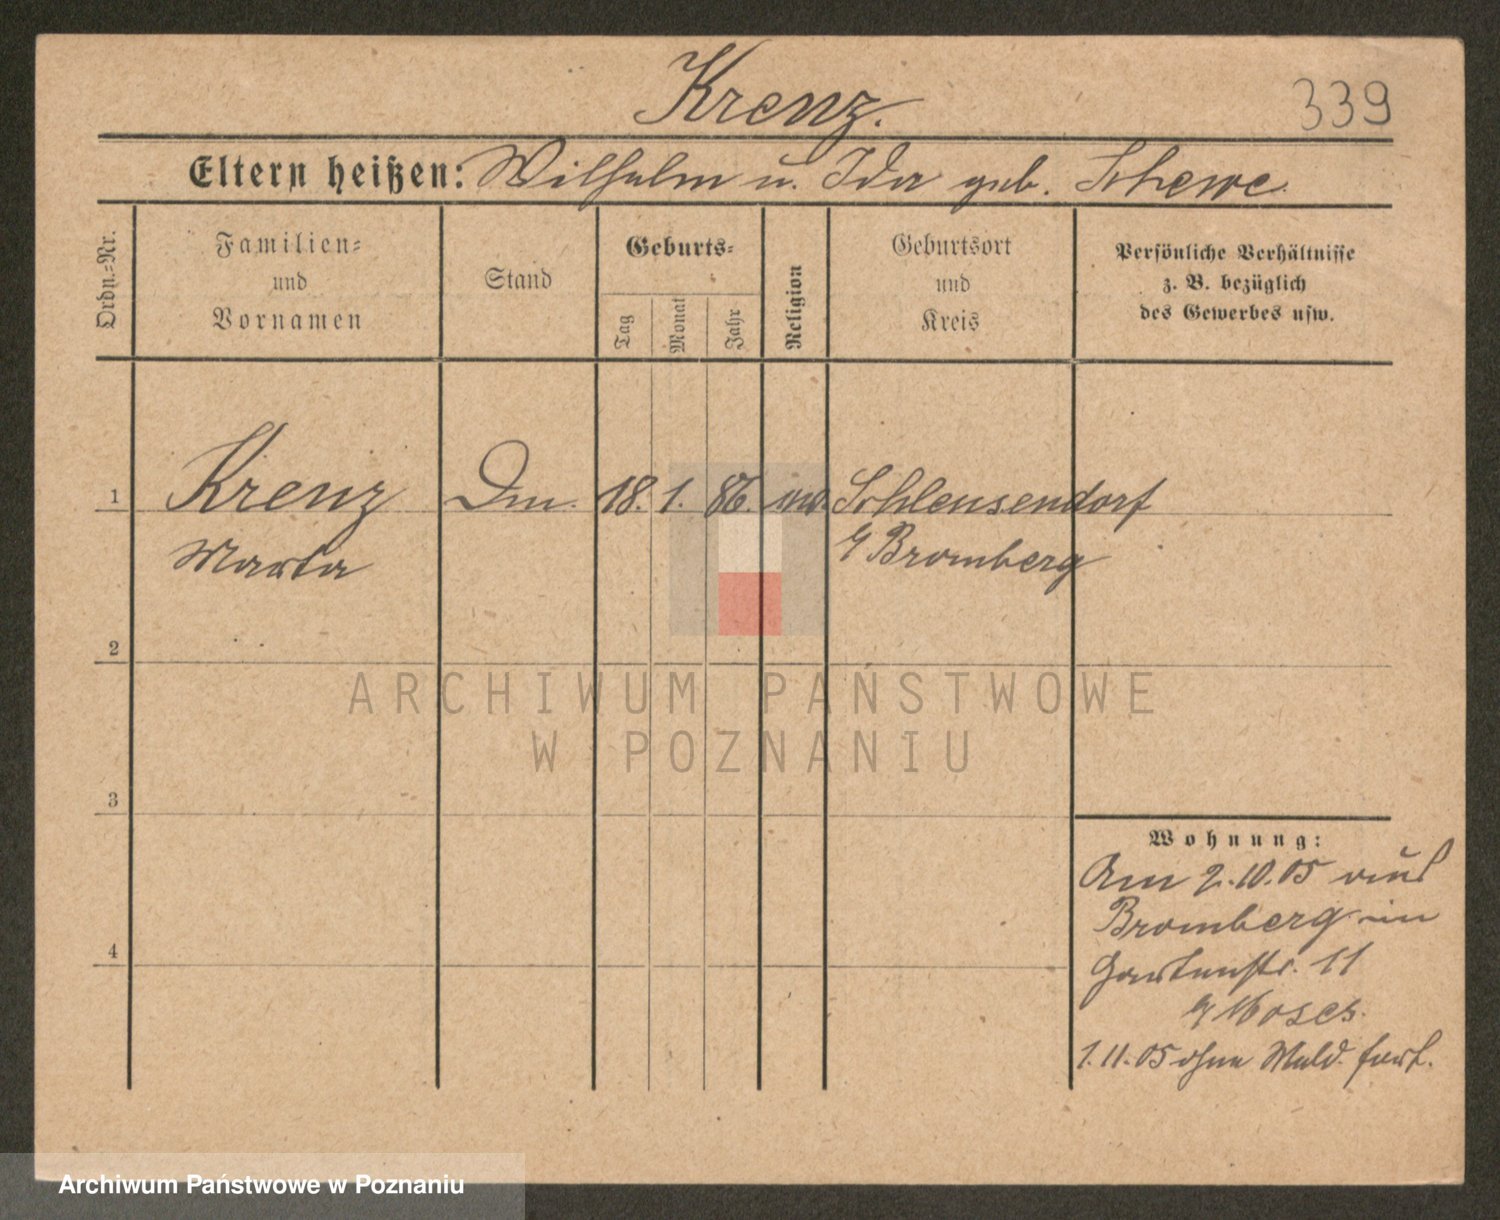 Krenz.
339
Eltern heißen: Wilhelm u. Ida geb. Schewe.
Ordn.-Nr.
Familien-
und
Vornamen
Stand
Geburts-
Tag
Monat
Jahr
Religion
Geburtsort
und
Kreis
Persönliche Verhältnisse
z. B. bezüglich
des Gewerbes usw.
1 Krenz Dm. 18. 1. 86. Schleusendorf
Marta Bromberg
2
3
4
Wohnung:
Am 2.10.05 aus
Bromberg in
Gartenstr. 11
Moses.
1.11.05 ohne Meld. fort.
ARCHIWUM PAŃSTWOWE
W POZNANIU
Archiwum Państwowe w Poznaniu